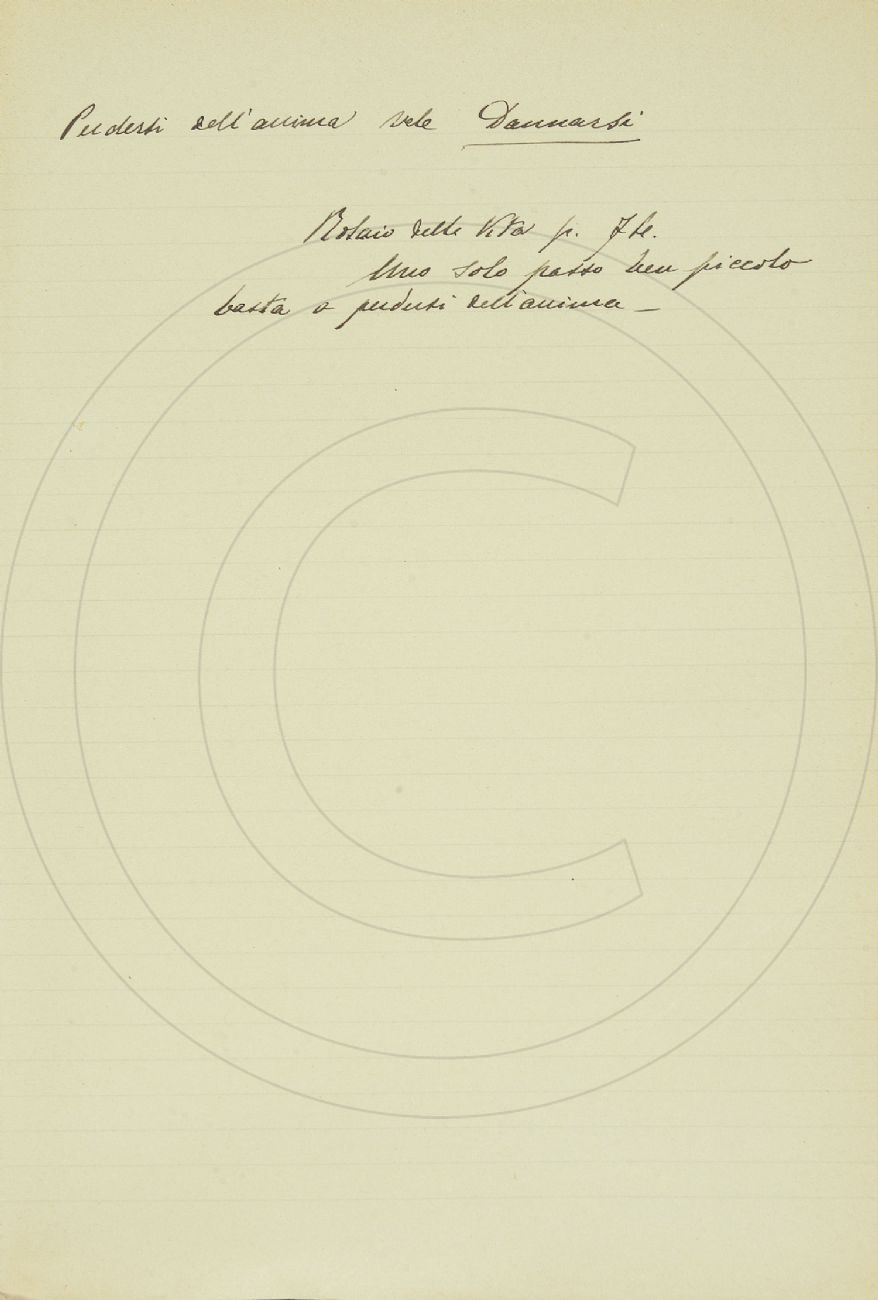 Perdersi dell'anima vale Dannarsi
Rosaio della Vita p.
Uno solo passo ben piccolo
basta a perdersi dell'anima —